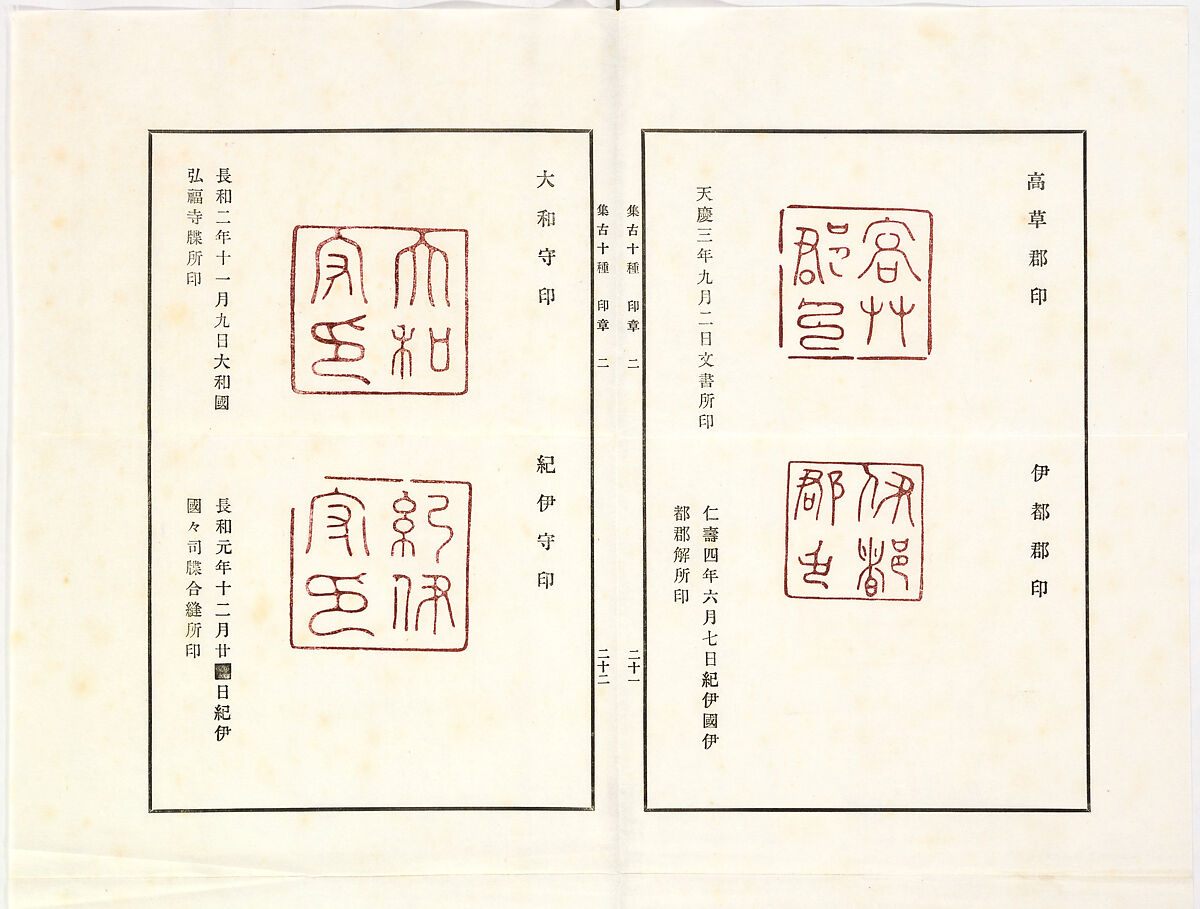 高草郡印
高艸
郡印
天慶三年九月二日文書所印
伊都郡印
伊都
郡印
仁壽四年六月七日紀伊國伊
都郡解所印
集古十種 印章 二 二十一
集古十種 印章 二 二十二
大和守印
大和
守印
長和二年十一月九日大和國
弘福寺牒所印
紀伊守印
紀伊
守印
長和元年十二月廿 日紀伊
國々司牒合縫所印